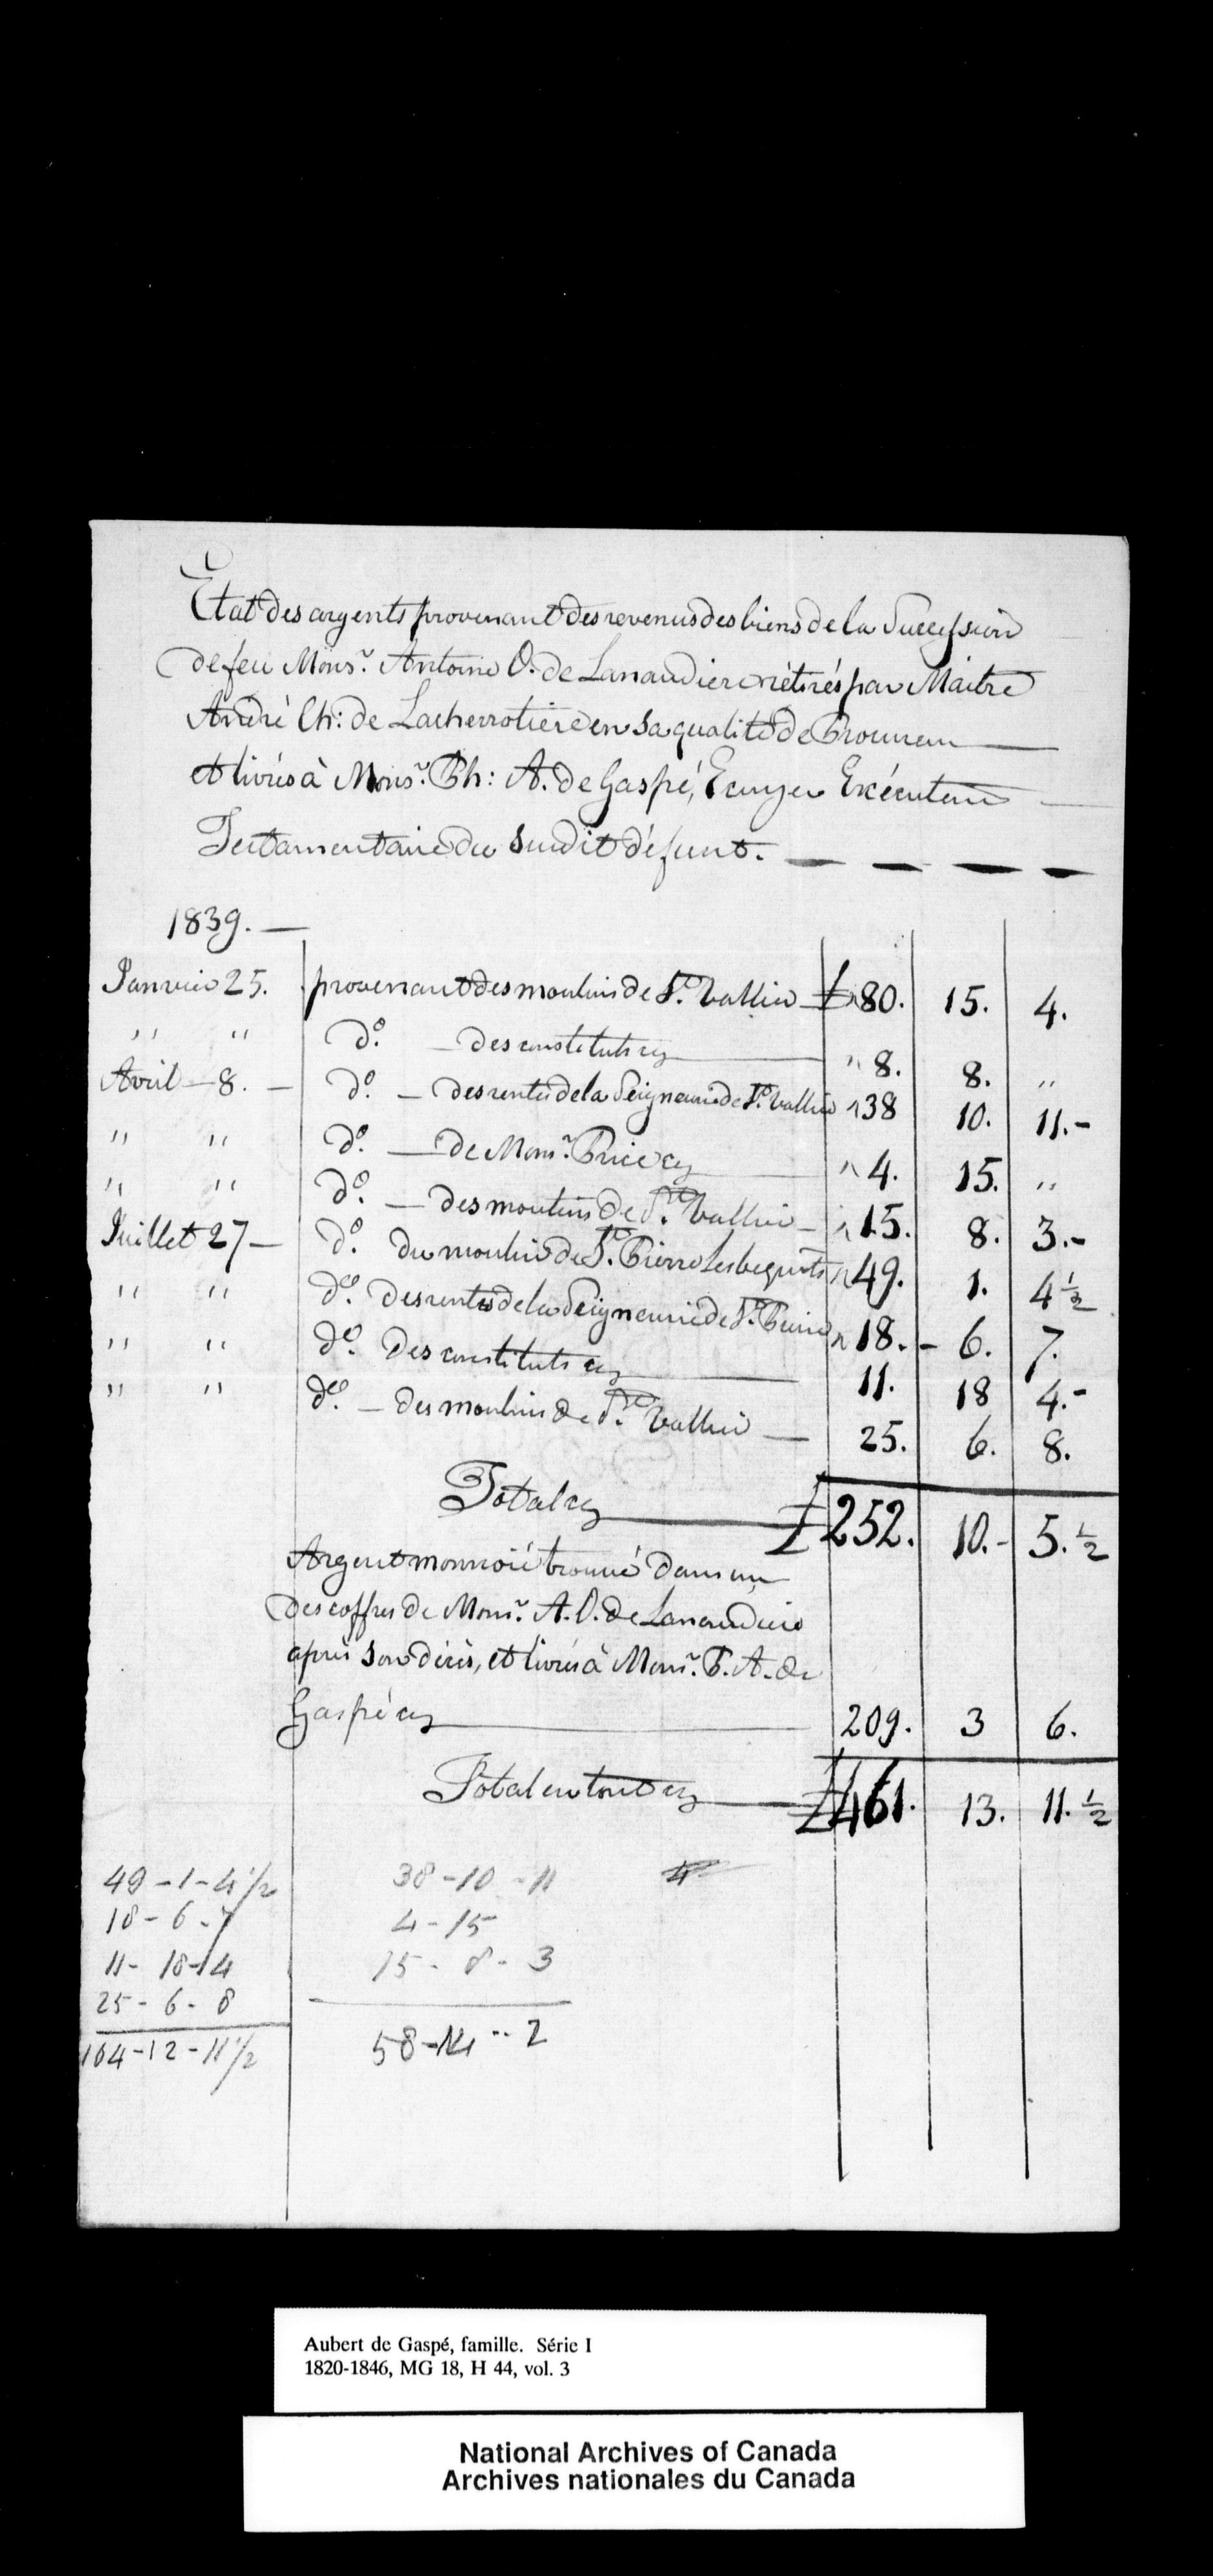 État des argents provenant des revenus des biens de la Succession
de feu Monsr. Antoine O. de Lanaudiere rétirés par Maitre
André Ch: de Lacherrotiere en sa qualité de Procureur
et livrés à Monsr. Ph: A. de Gaspé, Ecuyer Exécuteur
Testamentaire du susdit défunt.
1839.
Janvier 25. provenant des moulins de St. Vallier £ 80. 15. 4.
" " do. des constituts " 8. 8. "
Avril 8. do. des rentes de la Seigneurie de St. Vallier " 38 10. 11.
" " do. de Monsr. Price " 4. 15. "
" " do. des moulins de St. Vallier " 15. 8. 3.
Juillet 27 do. du moulin de St. Pierre Les becquets " 49. 1. 4 1/2
" " do. des rentes de la Seigneurie de St. Pierre " 18. 6. 7.
" " do. des constituts 11. 18 4.
" " do. des moulins de St. Vallier 25. 6. 8.
Total £ 252. 10. 5. 1/2
Argent monnoié trouvé dans un
des coffres de Monsr. A. O. de Lanaudiere
après son décès, et livrés à Monsr. P. A. de
Gaspé 209. 3 6.
Total en tout £ 461. 13. 11. 1/2
49 - 1 - 4 1/2
18 - 6 - 7
11 - 18 - 4
25 - 6 - 8
104 - 12 - 11 1/2
38 - 10 - 11
4 - 15
15 - 8 - 3
58 - 14 - 2
Aubert de Gaspé, famille. Série I
1820-1846, MG 18, H 44, vol. 3
National Archives of Canada
Archives nationales du Canada